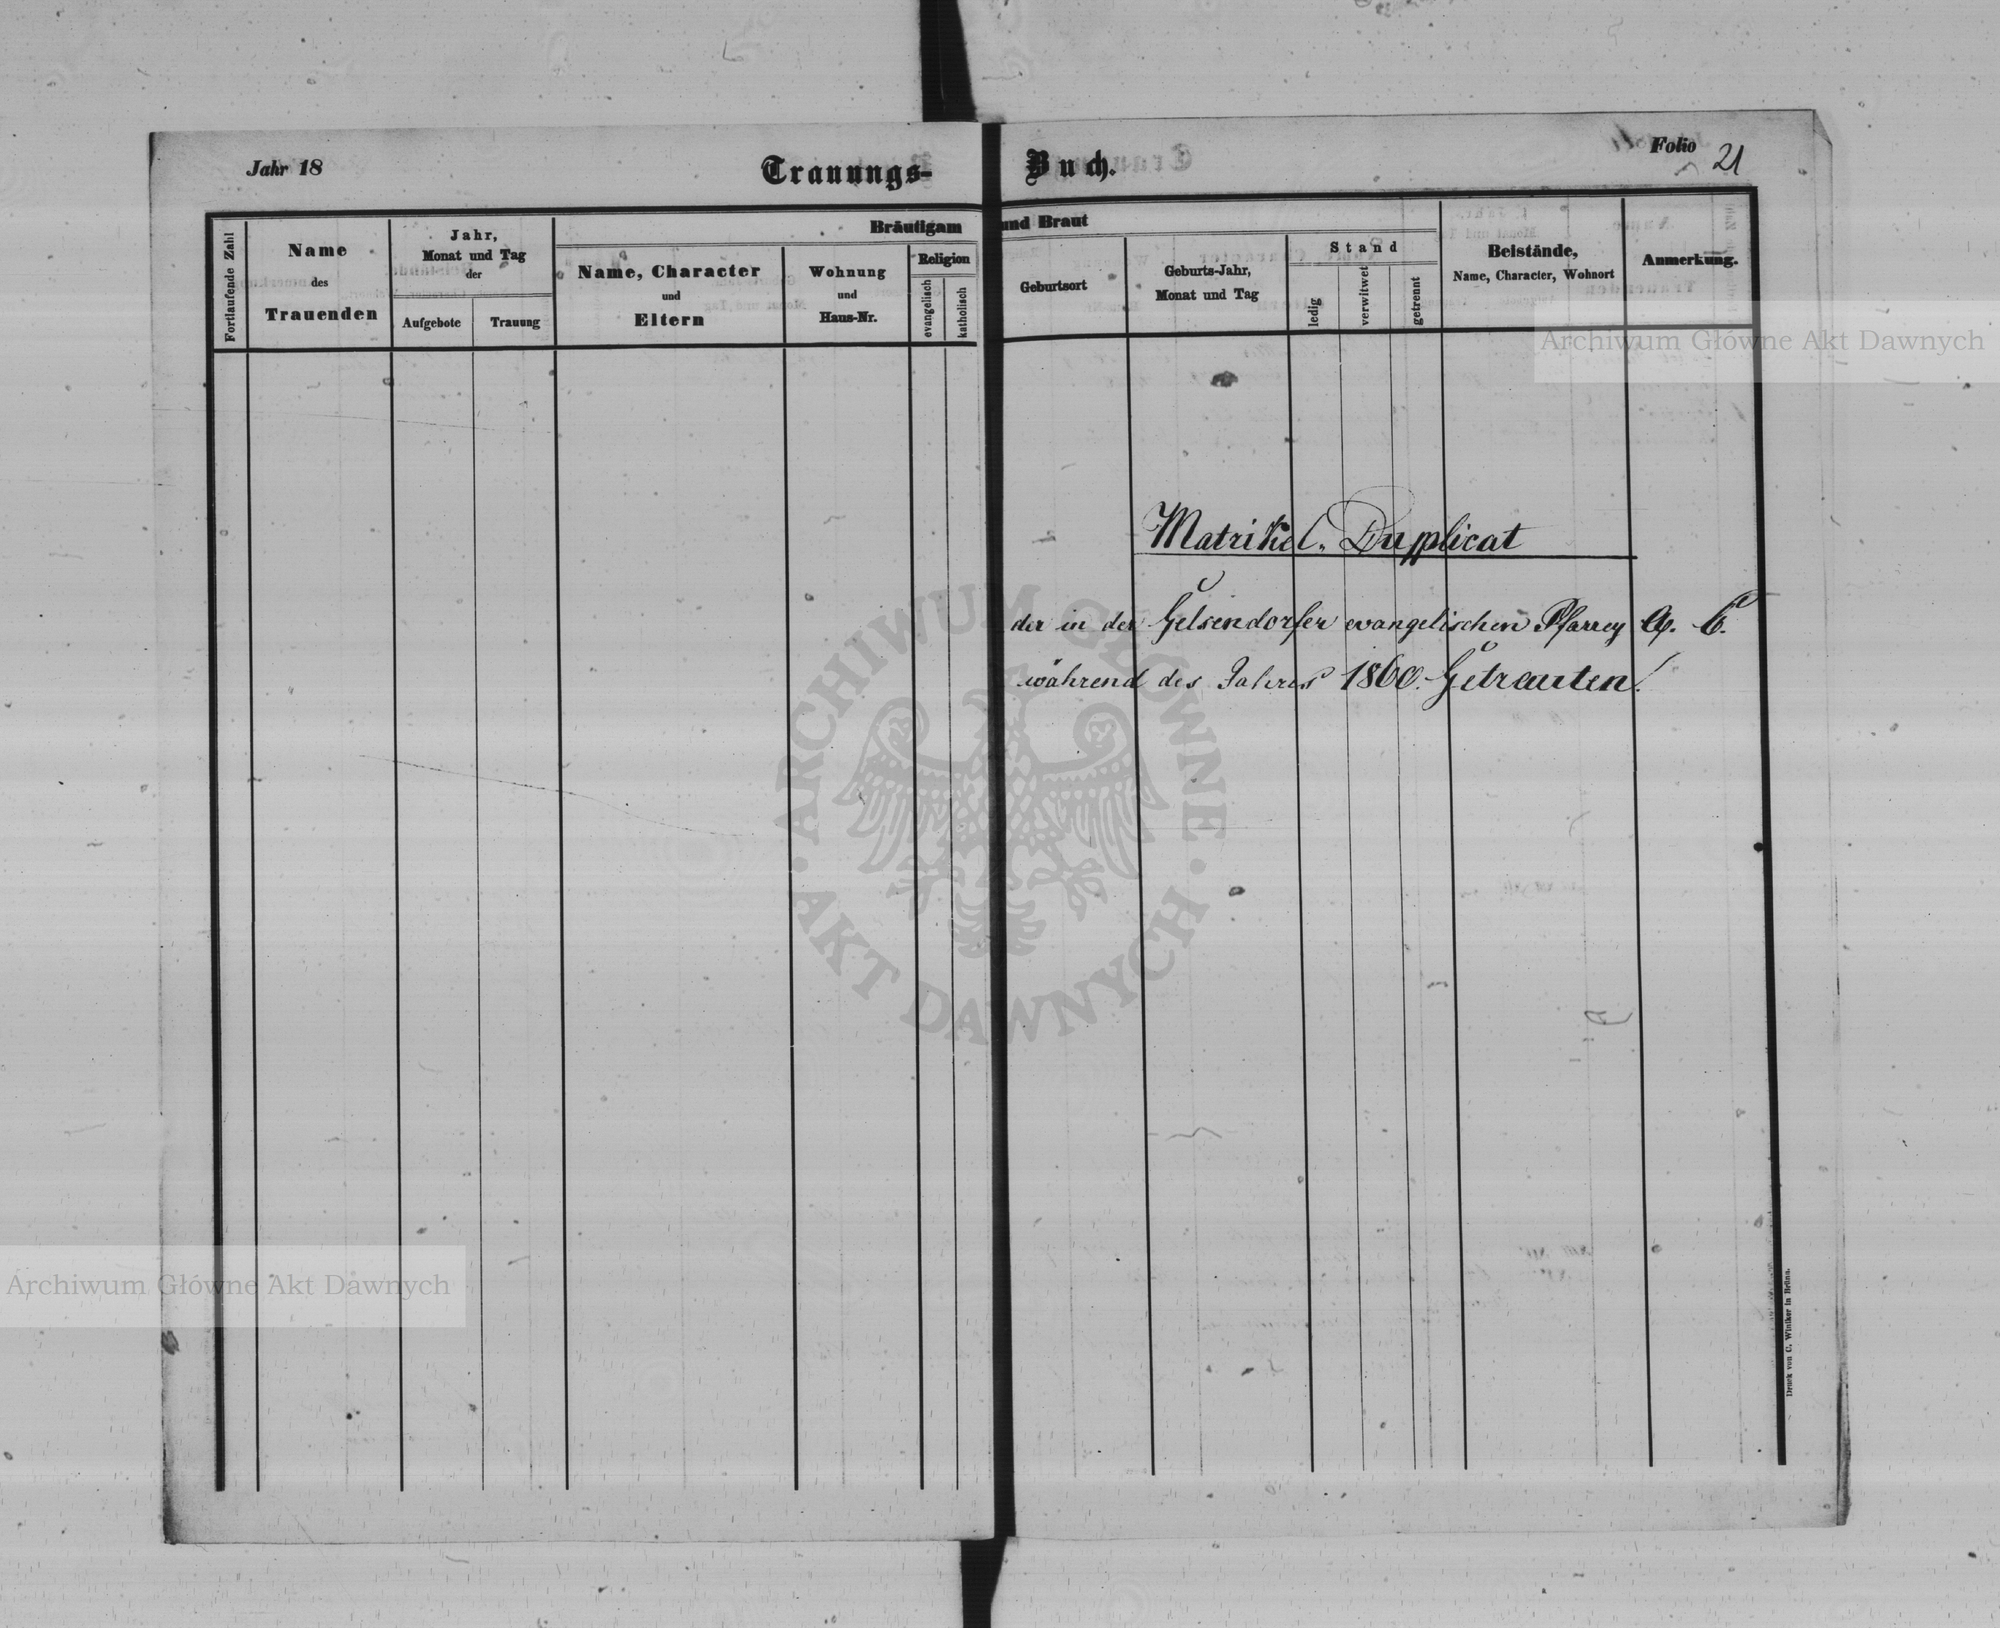 Jahr 18
Trauungs-Buch.
Folio 21
Fortlaufende Zahl
Name
des
Trauenden
Jahr,
Monat und Tag
der
Aufgebote
Trauung
Bräutigam und Braut
Name, Character
und
Eltern
Wohnung
und
Haus-Nr.
Religion
evangelisch
katholisch
Geburtsort
Geburts-Jahr,
Monat und Tag
Stand
ledig
verwitwet
getrennt
Beistände,
Name, Character, Wohnort
Anmerkung.
Archiwum Główne Akt Dawnych
Matrikel-Duplicat
der in der Gelsendorfer evangelischen Pfarrey A. C.
während des Jahres 1860. Getrauten!
ARCHIWUM GŁÓWNE · AKT DAWNYCH ·
Archiwum Główne Akt Dawnych
Druck von C. Winiker in Brünn.